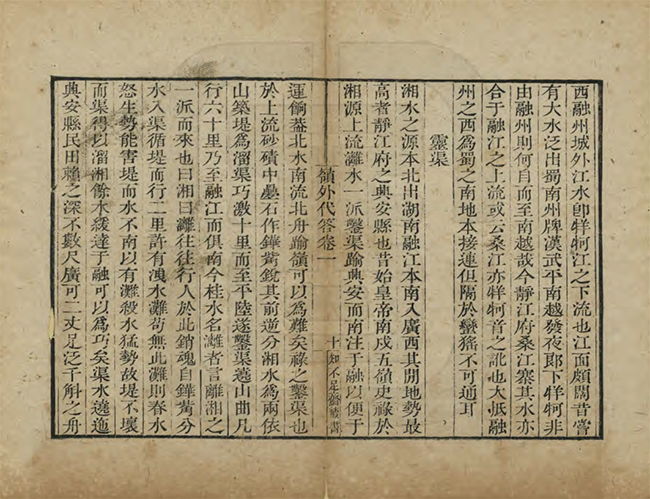 西融州城外江水卽牂牁江之下流也江面頗闊昔嘗
有大水泛出蜀南州牌漢武平南越發夜郎下牂牁非
由融州則何自而至南越哉今靜江府桑江寨其水亦
合于融江之上流或云桑江亦牂牁音之訛也大抵融
州之西爲蜀之南地本接連但隔於蠻猺不可通耳
靈渠
湘水之源本北出湖南融江本南入廣西其開地勢最
高者靜江府之興安縣也昔始皇帝南戍五嶺史祿於
湘源上流灕水一派鑿渠踰興安而南注于融以便于
嶺外代答卷一
十 知不足齋叢書
運餉葢北水南流北舟踰嶺可以爲難矣祿之鑿渠也
於上流砂磧中壘石作鏵觜銳其前逆分湘水爲兩依
山築堤爲溜渠巧激十里而至平陸遂鑿渠遶山曲凡
行六十里乃至融江而俱南今桂水名灕者言離湘之
一派而來也曰湘曰灕往往行人於此銷魂自鏵觜分
水入渠循堤而行二里許有洩水灘苟無此灘則春水
怒生勢能害堤而水不南以有灘殺水猛勢故堤不壞
而渠得以溜湘餘水緩達于融可以爲巧矣渠水遶迤
興安縣民田賴之深不數尺廣可二丈足泛千斛之舟